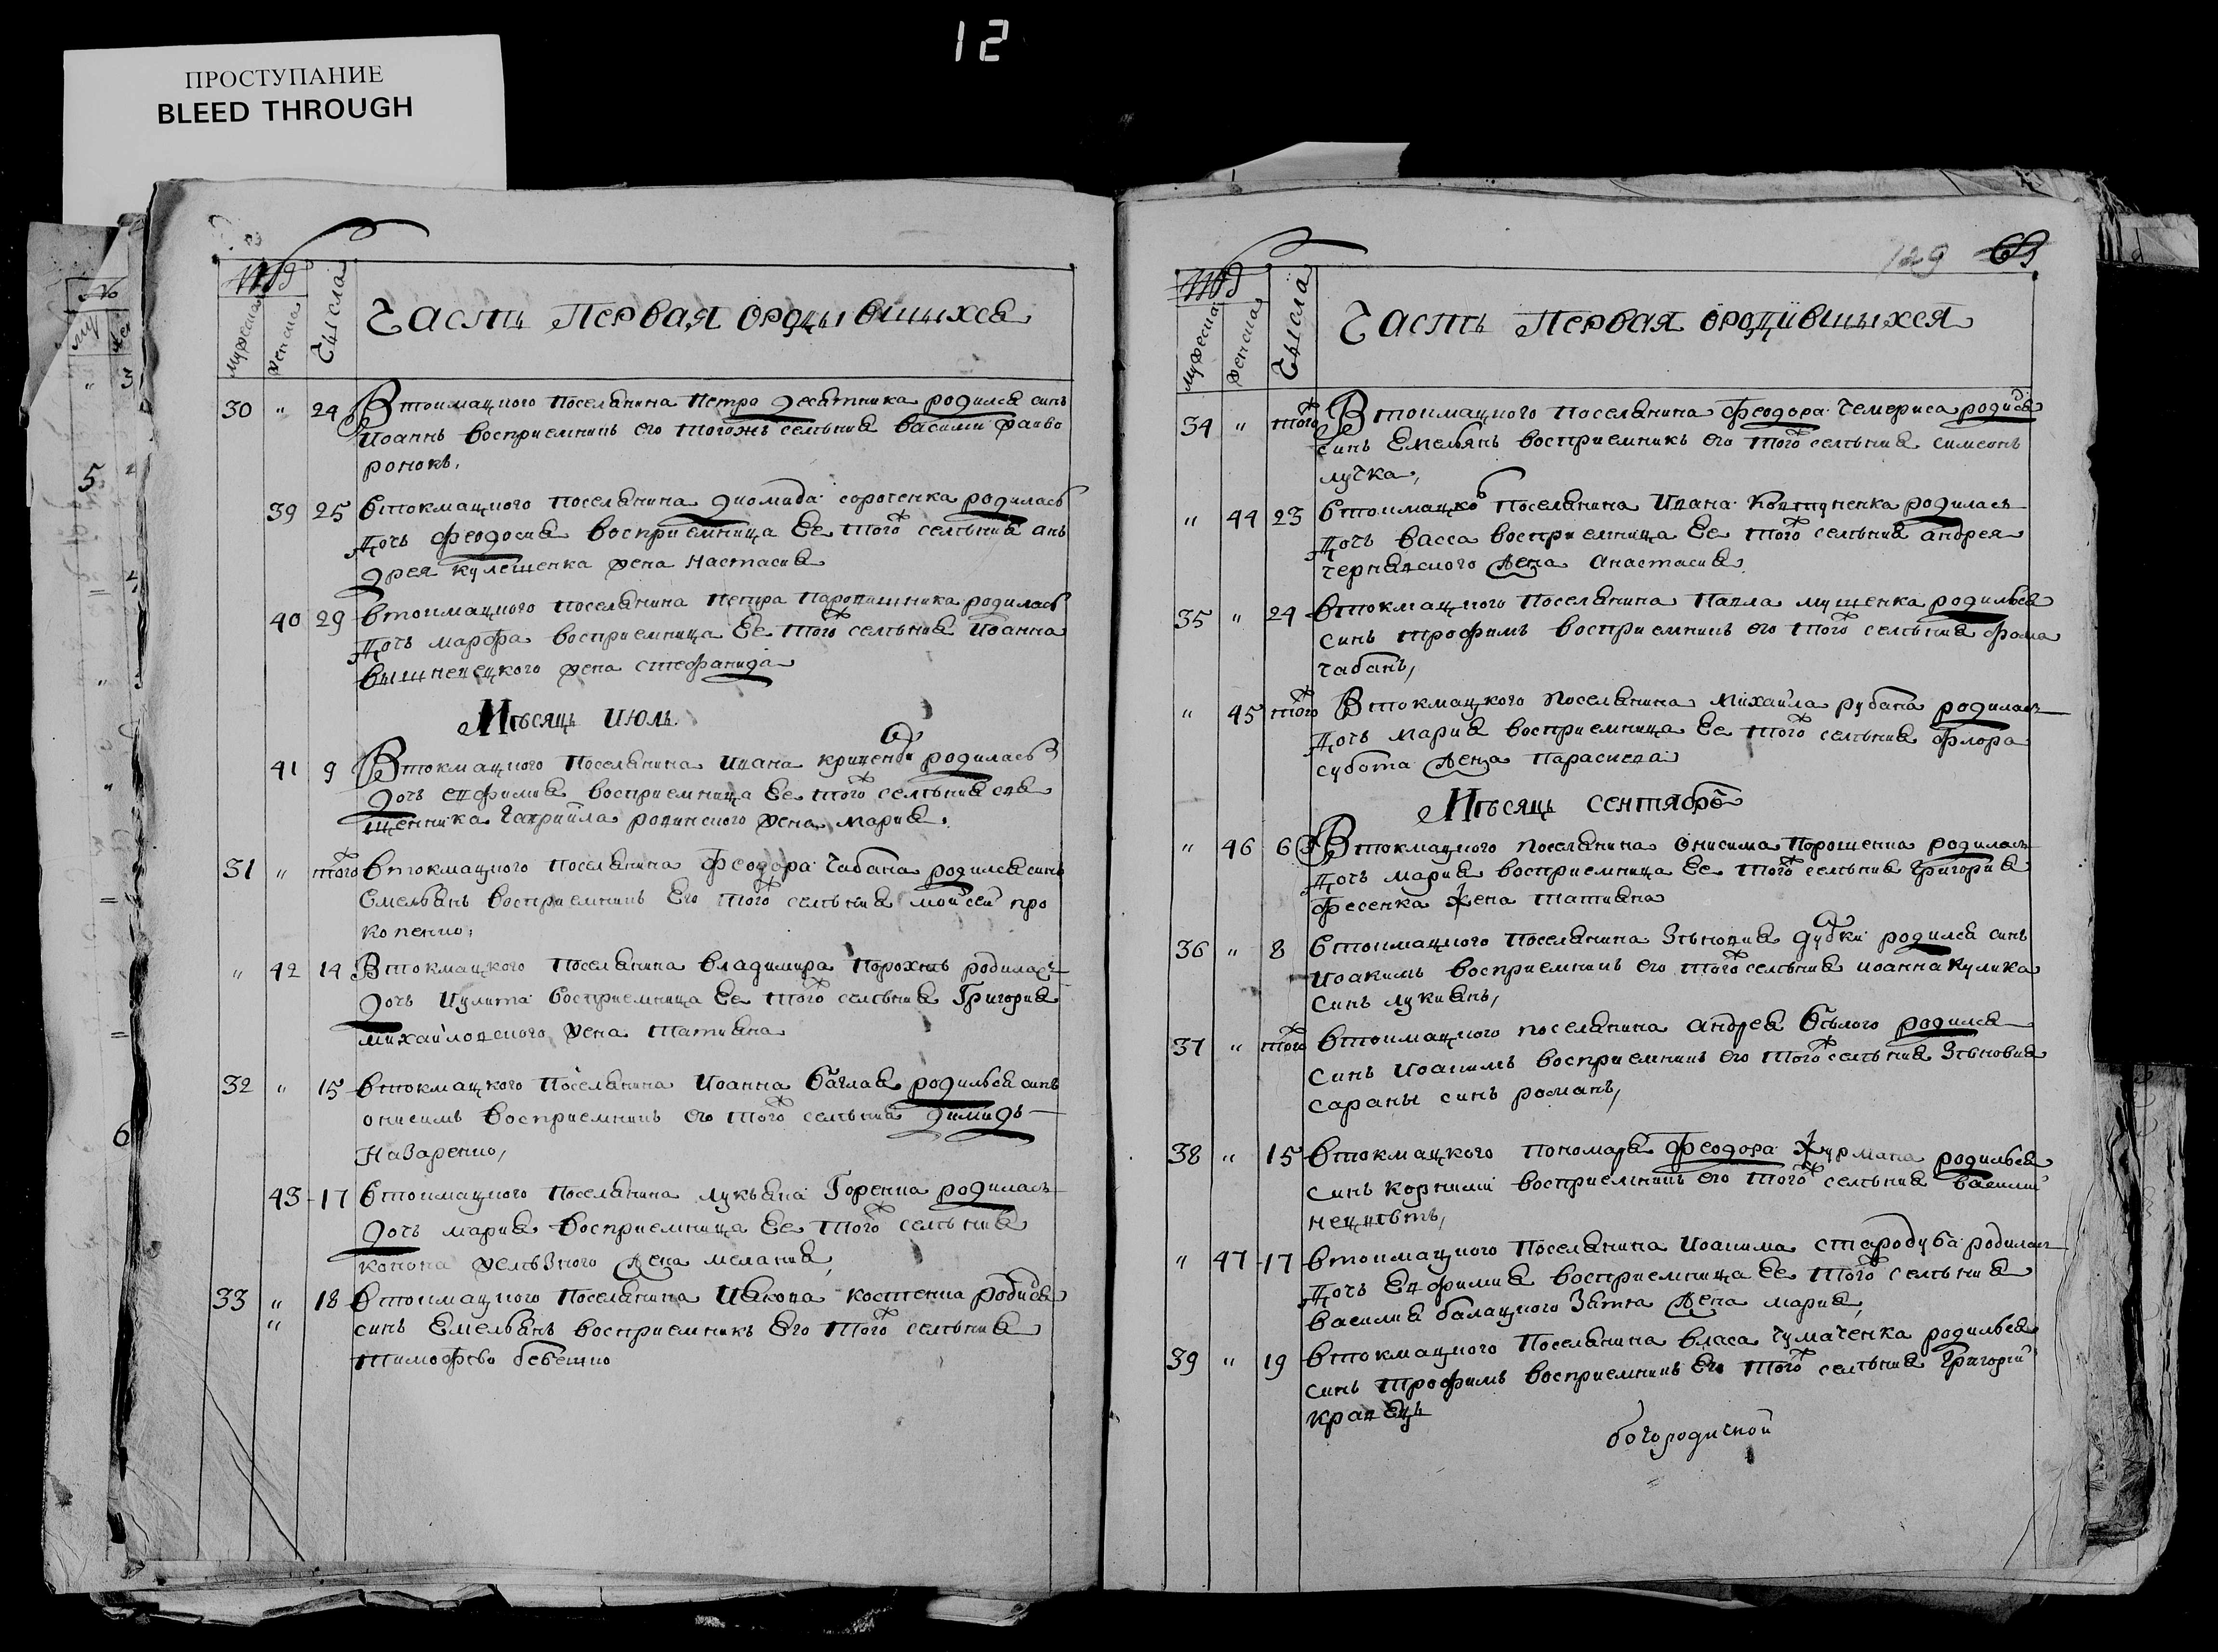 12
ПРОСТУПАНИЕ
BLEED THROUGH
мужеска женска Числа
Часть Первая ородывшыхся
30 " 24 Втокмацкого поселянина Петро десятника родился синъ
Иоаннъ восприемникъ его тогожъ селения василий
ронокъ,
39 25 втокмацкого поселянина диомида сороченка родилась
дочь феодосия восприемница Ее того селения ан
дрея кулешенка жена настасия
40 29 втокмацкого поселянина петра родилась
дочь марфа восприемница Ее того селения Иоанна
вышневецкого жена стефанида
Мѣсяць июль
41 9 Втокмацкого поселянина ивана родилась
дочь евфимия восприемница Ее того селения свя
щенника гавриила жена мария.
31 " того втокмацкого поселянина феодора чабана родился синъ
Емельянъ восприемникъ Его того селения мойсей про
копенко,
" 42 14 Втокмацкого поселянина владимира порохнѣ родилась
дочь иулита восприемница Ее того селения Григория
михайловского жена татияна
32 " 15 втокмацкого поселянина Иоанна баглая родилься синъ
онисимъ восприемникъ его того селения димидъ
назаренко,
43 17 втокмацкого поселянина лукьяна Горенка родилась
дочь мария восприемница Ее того селения
конона желѣзного жена мелания,
33 " 18 втокмацкого поселянина Иякова костенка родися
" синъ Емельянъ восприемникъ Его того селения
тимофѣй
129
мужеска женска Числа
Часть Первая ородившыхся
34 " того Втокмацкого поселянина феодора чемериса родися
синъ Емельянъ восприемникъ его того селения симеонъ
лучка,
" 44 23 втокмацко поселянина Ивана родилась
дочь васса восприемница Ее того селения андрея
чернявского жена анастасия
35 " 24 втокмацкого поселянина павла мущенка родилься
синъ трофимъ восприемникъ его того селения фома
чабанъ,
" 45 того Втокмацкого поселянина михаила рубана родилась
дочь мария восприемница Ее того селения флора
субота жена параскева
Мѣсяць сентябрь
" 46 6 Втокмацкого поселянина онисима порошенка родилась
дочь мария восприемница Ее того селения григория
фесенка жена татияна
36 " 8 втокмацкого поселянина зѣновия дубки родился синъ
иоакимъ восприемникъ его того селения иоанна кулика
синъ лукиянъ,
37 " того втокмацкого поселянина андрея бѣлого родился
синъ иоакимъ восприемникъ его того селения зѣновия
сараны синъ романъ,
38 " 15 втокмацкого пономаря феодора журмана родилься
синъ корнилий восприемникъ его того селения василий
нецвѣтъ,
" 47 17 втокмацкого поселянина иоакима стародуба родилась
дочь Евфимия восприемница Ее того селения
василия балацкого зятка жена мария,
39 " 19 втокмацкого поселянина власа чумаченка родилься
синъ трофимъ восприемникъ Его того селения григорий
кравецъ
богородиской